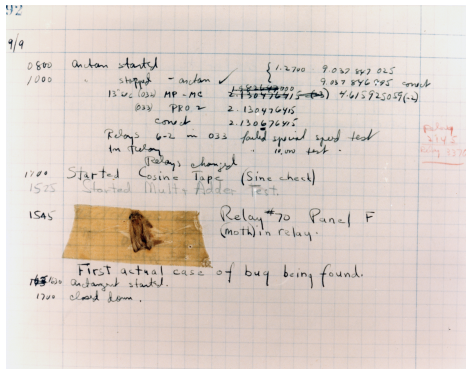 92
9/9
0800 antan started { 1.2700 9.037 847 025
1000 " stopped - antan ✓ 9.037 846 995 correct
13"uc (032) MP - MC 4.615925059(-2)
(033) PRO 2 2.130476415
correct 2.130676415
Relays 6-2 in 033 failed special speed test
in relay " 10.000 test .
Relays changed
1100 Started Cosine Tape (Sine check)
1525 Started Mult+ Adder Test.
1545 Relay #70 Panel F
(moth) in relay.
First actual case of bug being found.
1630 antangent started.
1700 closed down .
Relay